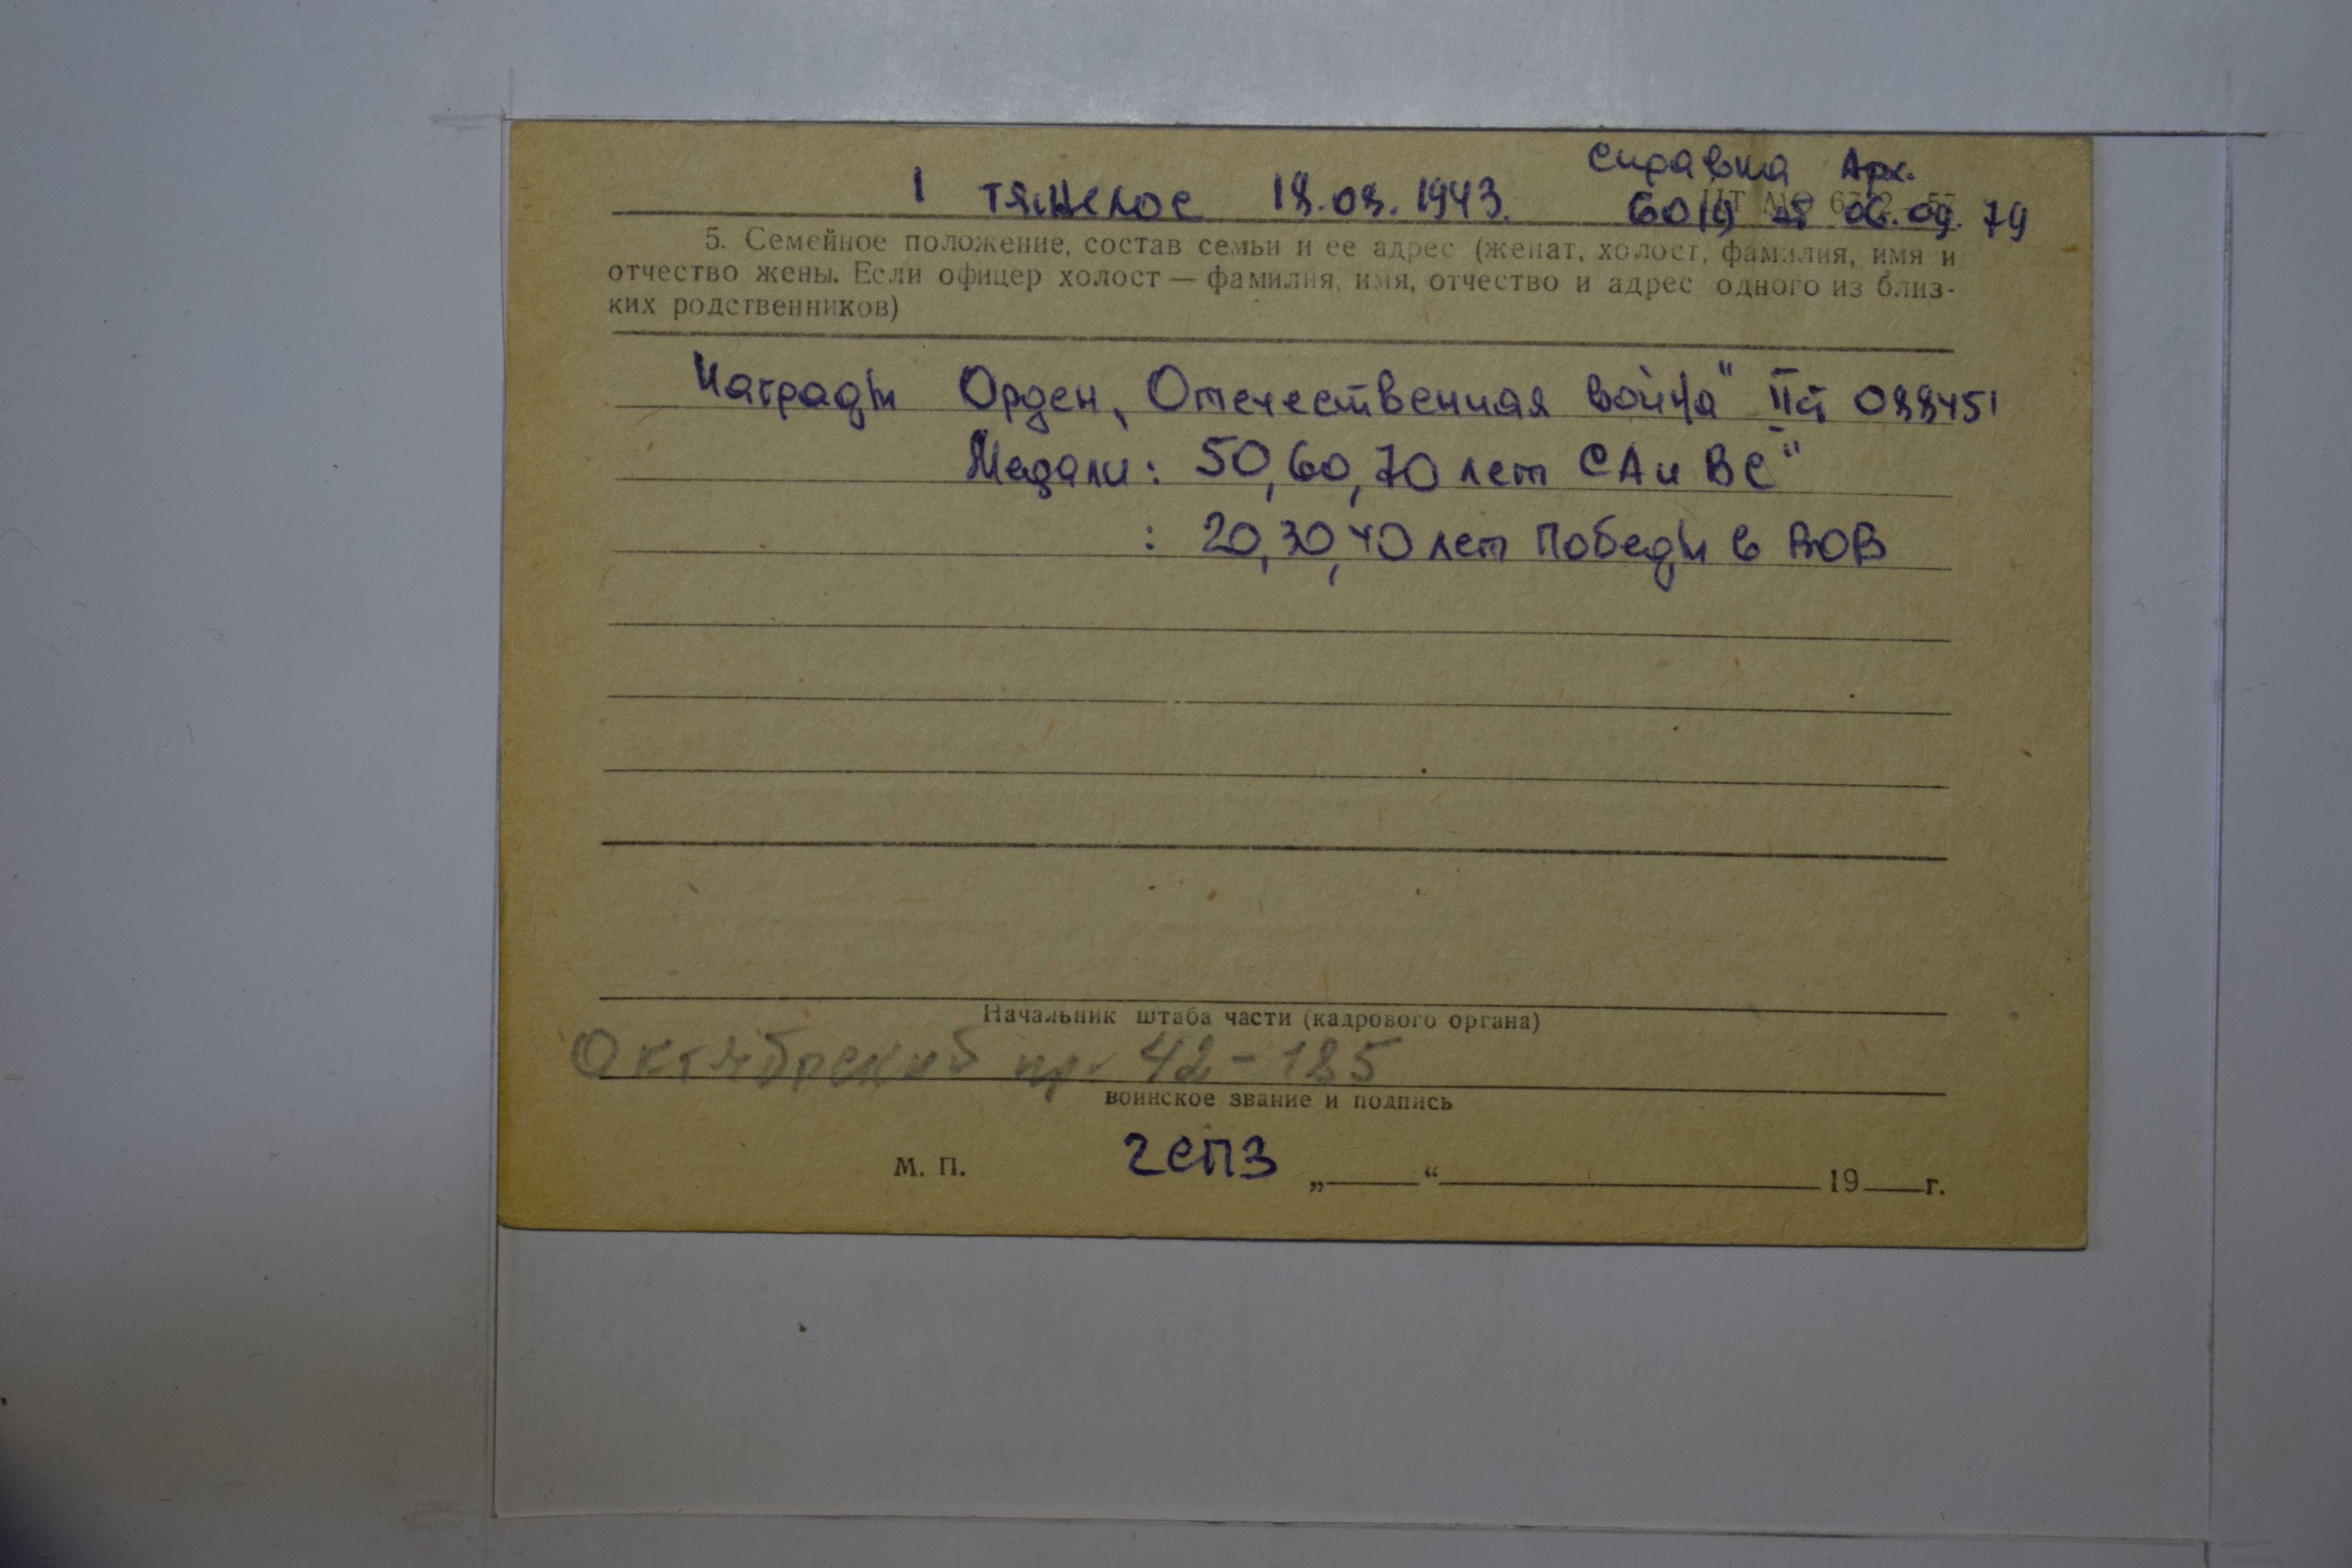 Справка Арх.
1 тяжелое 18.08.1943. 6019 от 06.09.79
5. Семейное положение, состав семьи и ее адрес (женат, холост, фамилия, имя и
отчество жены. Если офицер холост — фамилия, имя, отчество и адрес одного из близ-
ких родственников)
Награды Орден „Отечественная война" II ст 088451
Медали: 50, 60, 70 лет СА и ВС"
: 20, 30, 40 лет Победы в ВОВ
Начальник штаба части (кадрового органа)
Октябрьский пр. 42-185
воинское звание и подпись
М. П. 2СПЗ „ “ 19 г.